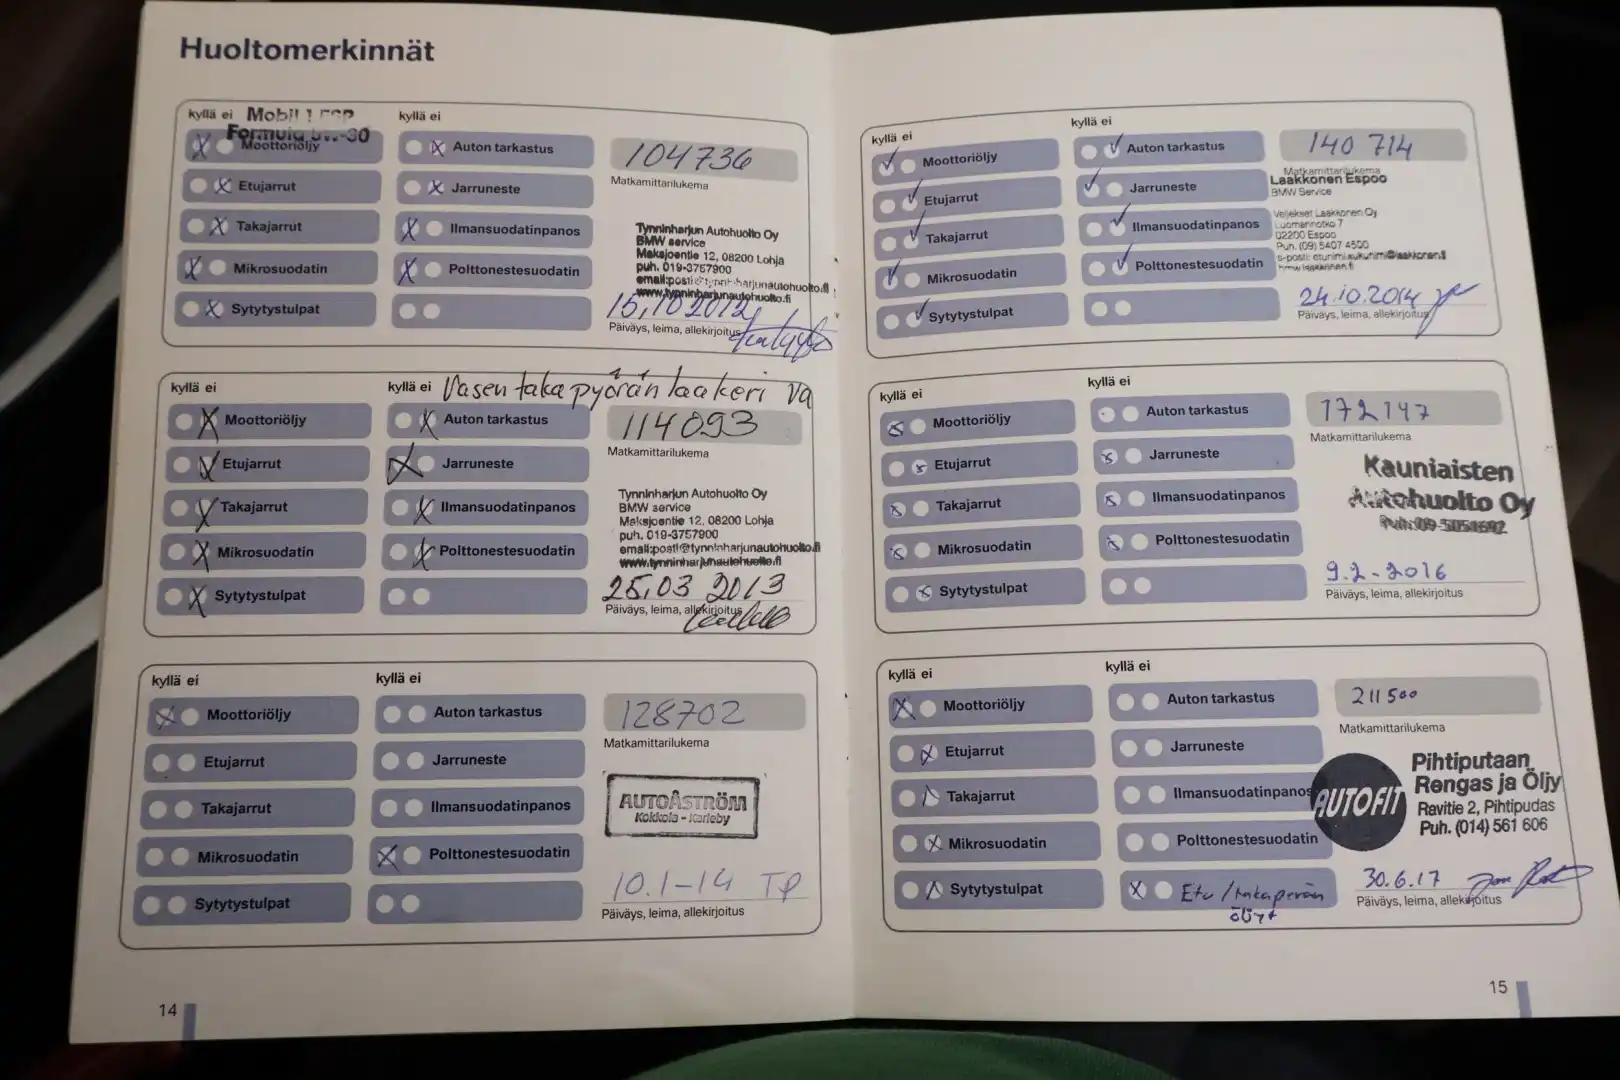 Huoltomerkinnät
kyllä ei
Mobil 1 ESP
Formula 5W-30
Moottoriöljy
Etujarrut
Takajarrut
Mikrosuodatin
Sytytystulpat
kyllä ei
Auton tarkastus
Jarruneste
Ilmansuodatinpanos
Polttonestesuodatin
104736
Matkamittarilukema
Tynninharjun Autohuolto Oy
BMW service
Maksjoentie 12, 08200 Lohja
puh. 019-3757900
email:posti@tynninharjunautohuolto.fi
www.tynninharjunautohuolto.fi
15,10 2012
Päiväys, leima, allekirjoitus
kyllä ei
Moottoriöljy
Etujarrut
Takajarrut
Mikrosuodatin
Sytytystulpat
kyllä ei
Vasen takapyörän laakeri va
Auton tarkastus
Jarruneste
Ilmansuodatinpanos
Polttonestesuodatin
114093
Matkamittarilukema
Tynninharjun Autohuolto Oy
BMW service
Maksjoentie 12, 08200 Lohja
puh. 019-3757900
email:posti@tynninharjunautohuolto.fi
www.tynninharjunautohuolto.fi
25,03 2013
Päiväys, leima, allekirjoitus
kyllä ei
Moottoriöljy
Etujarrut
Takajarrut
Mikrosuodatin
Sytytystulpat
kyllä ei
Auton tarkastus
Jarruneste
Ilmansuodatinpanos
Polttonestesuodatin
128702
Matkamittarilukema
AUTOÅSTRÖM
Kokkola - Karleby
10.1-14 TP
Päiväys, leima, allekirjoitus
14
kyllä ei
Moottoriöljy
Etujarrut
Takajarrut
Mikrosuodatin
Sytytystulpat
kyllä ei
Auton tarkastus
Jarruneste
Ilmansuodatinpanos
Polttonestesuodatin
140 714
Matkamittarilukema
Laakkonen Espoo
BMW Service
Veljekset Laakkonen Oy
Luomannotko 7
02200 Espoo
Puh. (09) 5407 4500
s-posti: etunimi.sukunimi@laakkonen.fi
bmw.laakkonen.fi
24.10.2014
Päiväys, leima, allekirjoitus
kyllä ei
Moottoriöljy
Etujarrut
Takajarrut
Mikrosuodatin
Sytytystulpat
kyllä ei
Auton tarkastus
Jarruneste
Ilmansuodatinpanos
Polttonestesuodatin
172147
Matkamittarilukema
Kauniaisten
Autohuolto Oy
Puh. 09-5051692
9.2-2016
Päiväys, leima, allekirjoitus
kyllä ei
Moottoriöljy
Etujarrut
Takajarrut
Mikrosuodatin
Sytytystulpat
kyllä ei
Auton tarkastus
Jarruneste
Ilmansuodatinpanos
Polttonestesuodatin
Etu/takaperän
öljyt
211500
Matkamittarilukema
AUTOFIT
Pihtiputaan
Rengas ja Öljy
Ravitie 2, Pihtipudas
Puh. (014) 561 606
30.6.17
Päiväys, leima, allekirjoitus
15